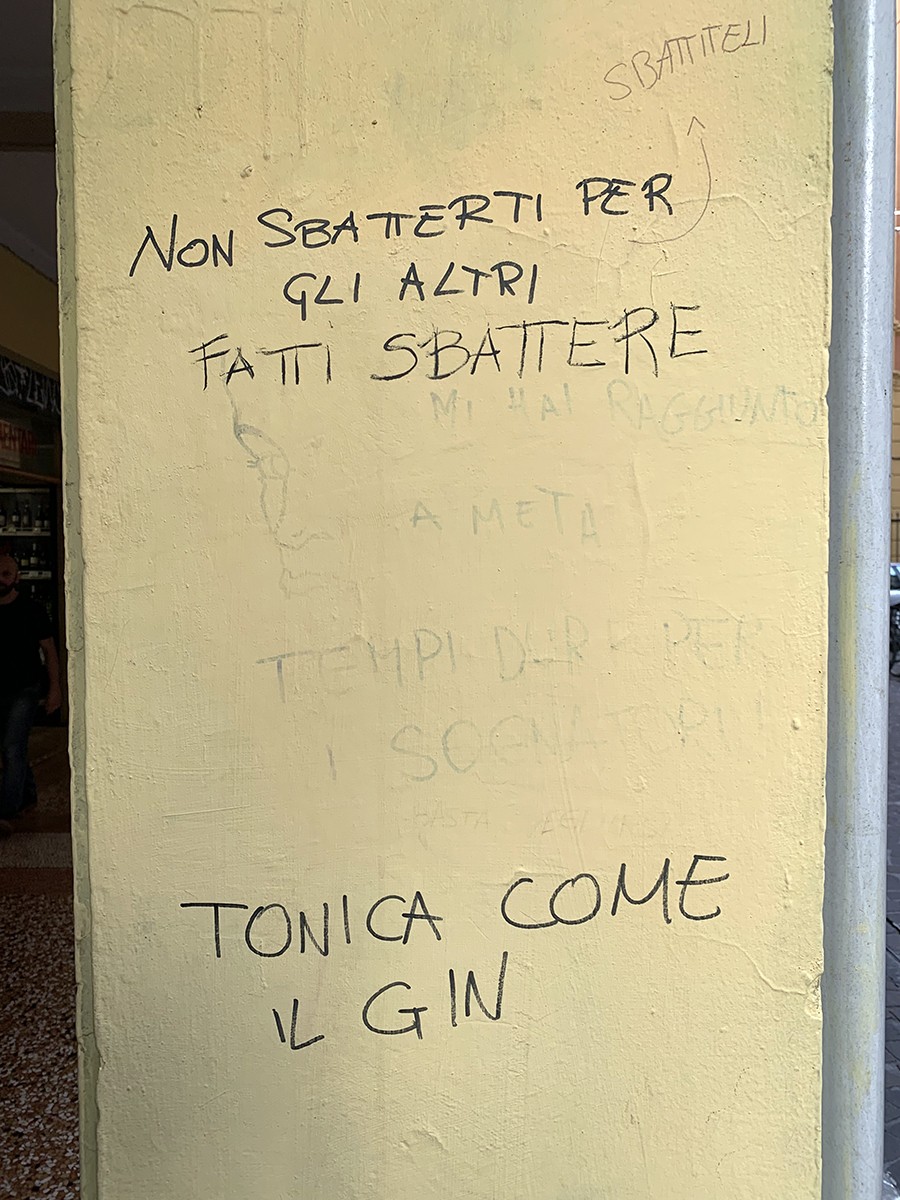 SBATTITELI
NON SBATTERTI PER
GLI ALTRI
FATTI SBATTERE
MI HAI RAGGIUNTO
A METÀ
TEMPI DURI PER
I SOGNATORI
BASTA
TONICA COME
IL GIN